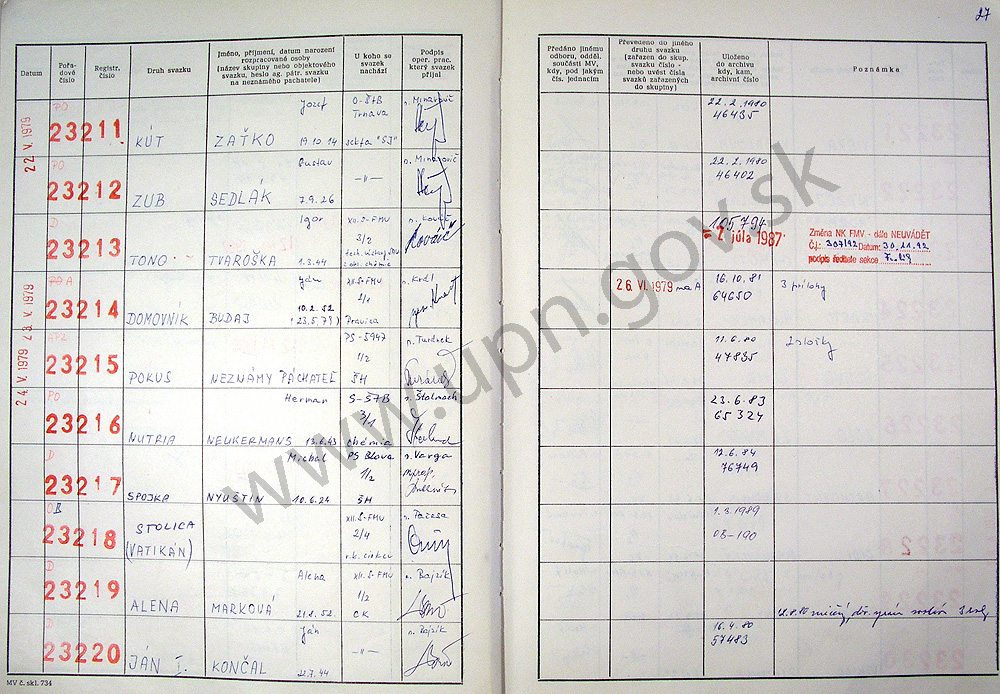 27
Datum
Pořadové číslo
Registr. číslo
Druh svazku
Jméno, příjmení, datum narození rozpracované osoby
(název skupiny nebo objektového svazku, heslo ag. pátr. svazku na neznámého pachatele)
U koho se svazek nachází
Podpis oper. prac. který svazek přijal
Předáno jinému odboru, odděl. součásti MV, kdy, pod jakým čís. jednacím
Převedeno do jiného druhu svazku (zařazen do skup. svazku číslo - nebo uvést čísla svazků zařazených do skupiny)
Uloženo do archivu kdy, kam, archivní číslo
Poznámka
22. V. 1979
PO
23211
KÚT
Jozef
ZAŤKO 19.10.14
O-ŠtB
Trnava
sekta "SJ"
22.2.1980
46435
PO
23212
ZUB
Gustav
SEDLÁK 7.9.26
—"—
22.2.1980
46402
D
23213
TONO
Igor
TVAROŠKA 1.3.44
XII.S-FMV
3/2
Kováč
105794
2. júla 1987
Změna NK FMV - dále NEUVÁDĚT
Č.j.: 307/92 Datum: 30.11.92
podpis ředitele sekce
23. V. 1979
PO A
23214
DOMOVNÍK
Ján
BUDAJ 10.2.52
(23.5.79)
XII.S-FMV
2/1
Pravica
26. VI. 1979 na A
16.10.81
64650
3 prílohy
24. V. 1979
23215
POKUS
NEZNÁMY PÁCHATEĽ
PS-5947
1/2
ŠH
11.6.80
47835
PO
23216
NUTRIA
Herman
NEUKERMANS 13.6.43
S-ŠTB
3/1
chémia
23.6.83
65324
D
23217
SPOJKA
Michal
NYUŠTIN 10.6.24
PS Blava
1/2
ŠH
p. Varga
12.6.84
76749
OB
23218
STOLICA
(VATIKÁN)
XII.S-FMV
2/4
r.k. cirkev
1.3.1989
OB-190
D
23219
ALENA
Alena
MARKOVÁ 21.8.52
XII.S-FMV
1/2
CK
p. Bajzík
D
23220
JÁN I.
Ján
KONČAL 22.7.44
—"—
p. Bajzík
16.4.80
57483
MV č. skl. 734
www.upn.gov.sk